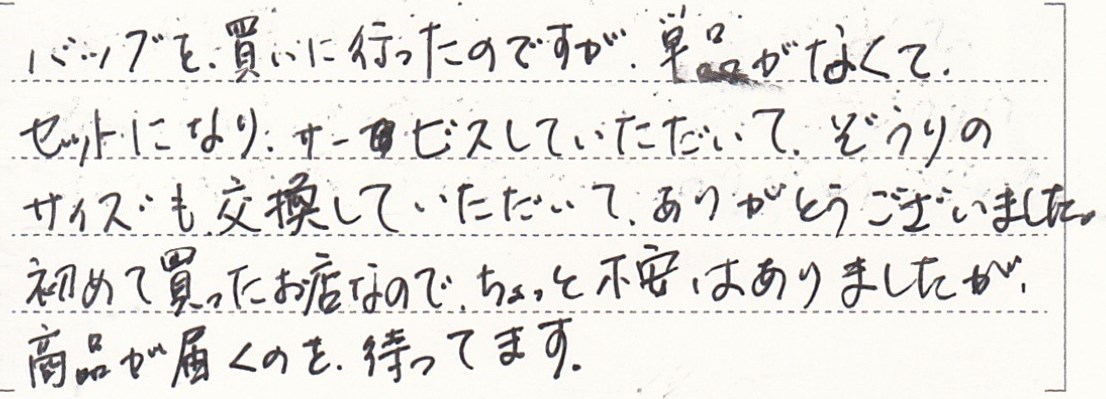 バッグを、買いに行ったのですが、単品がなくて、
セットになり、サービスしていただいて、ぞうりの
サイズも交換していただいて、ありがとうございました。
初めて買ったお店なので、ちょっと不安はありましたが、
商品が届くのを、待ってます。